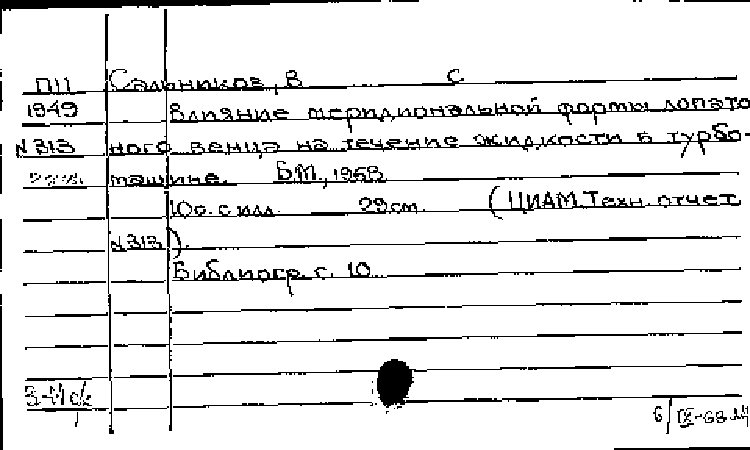 ПП Сальников, В С
1949 Влияние меридиональной формы лопато
N 313 ного венца на течение жидкости в турбо-
машине. БМ, 1963
10 с. с илл. 29 см. (ЦИАМ. Техн. отчет
N 313).
Библиогр. с. 10
6/IX-63